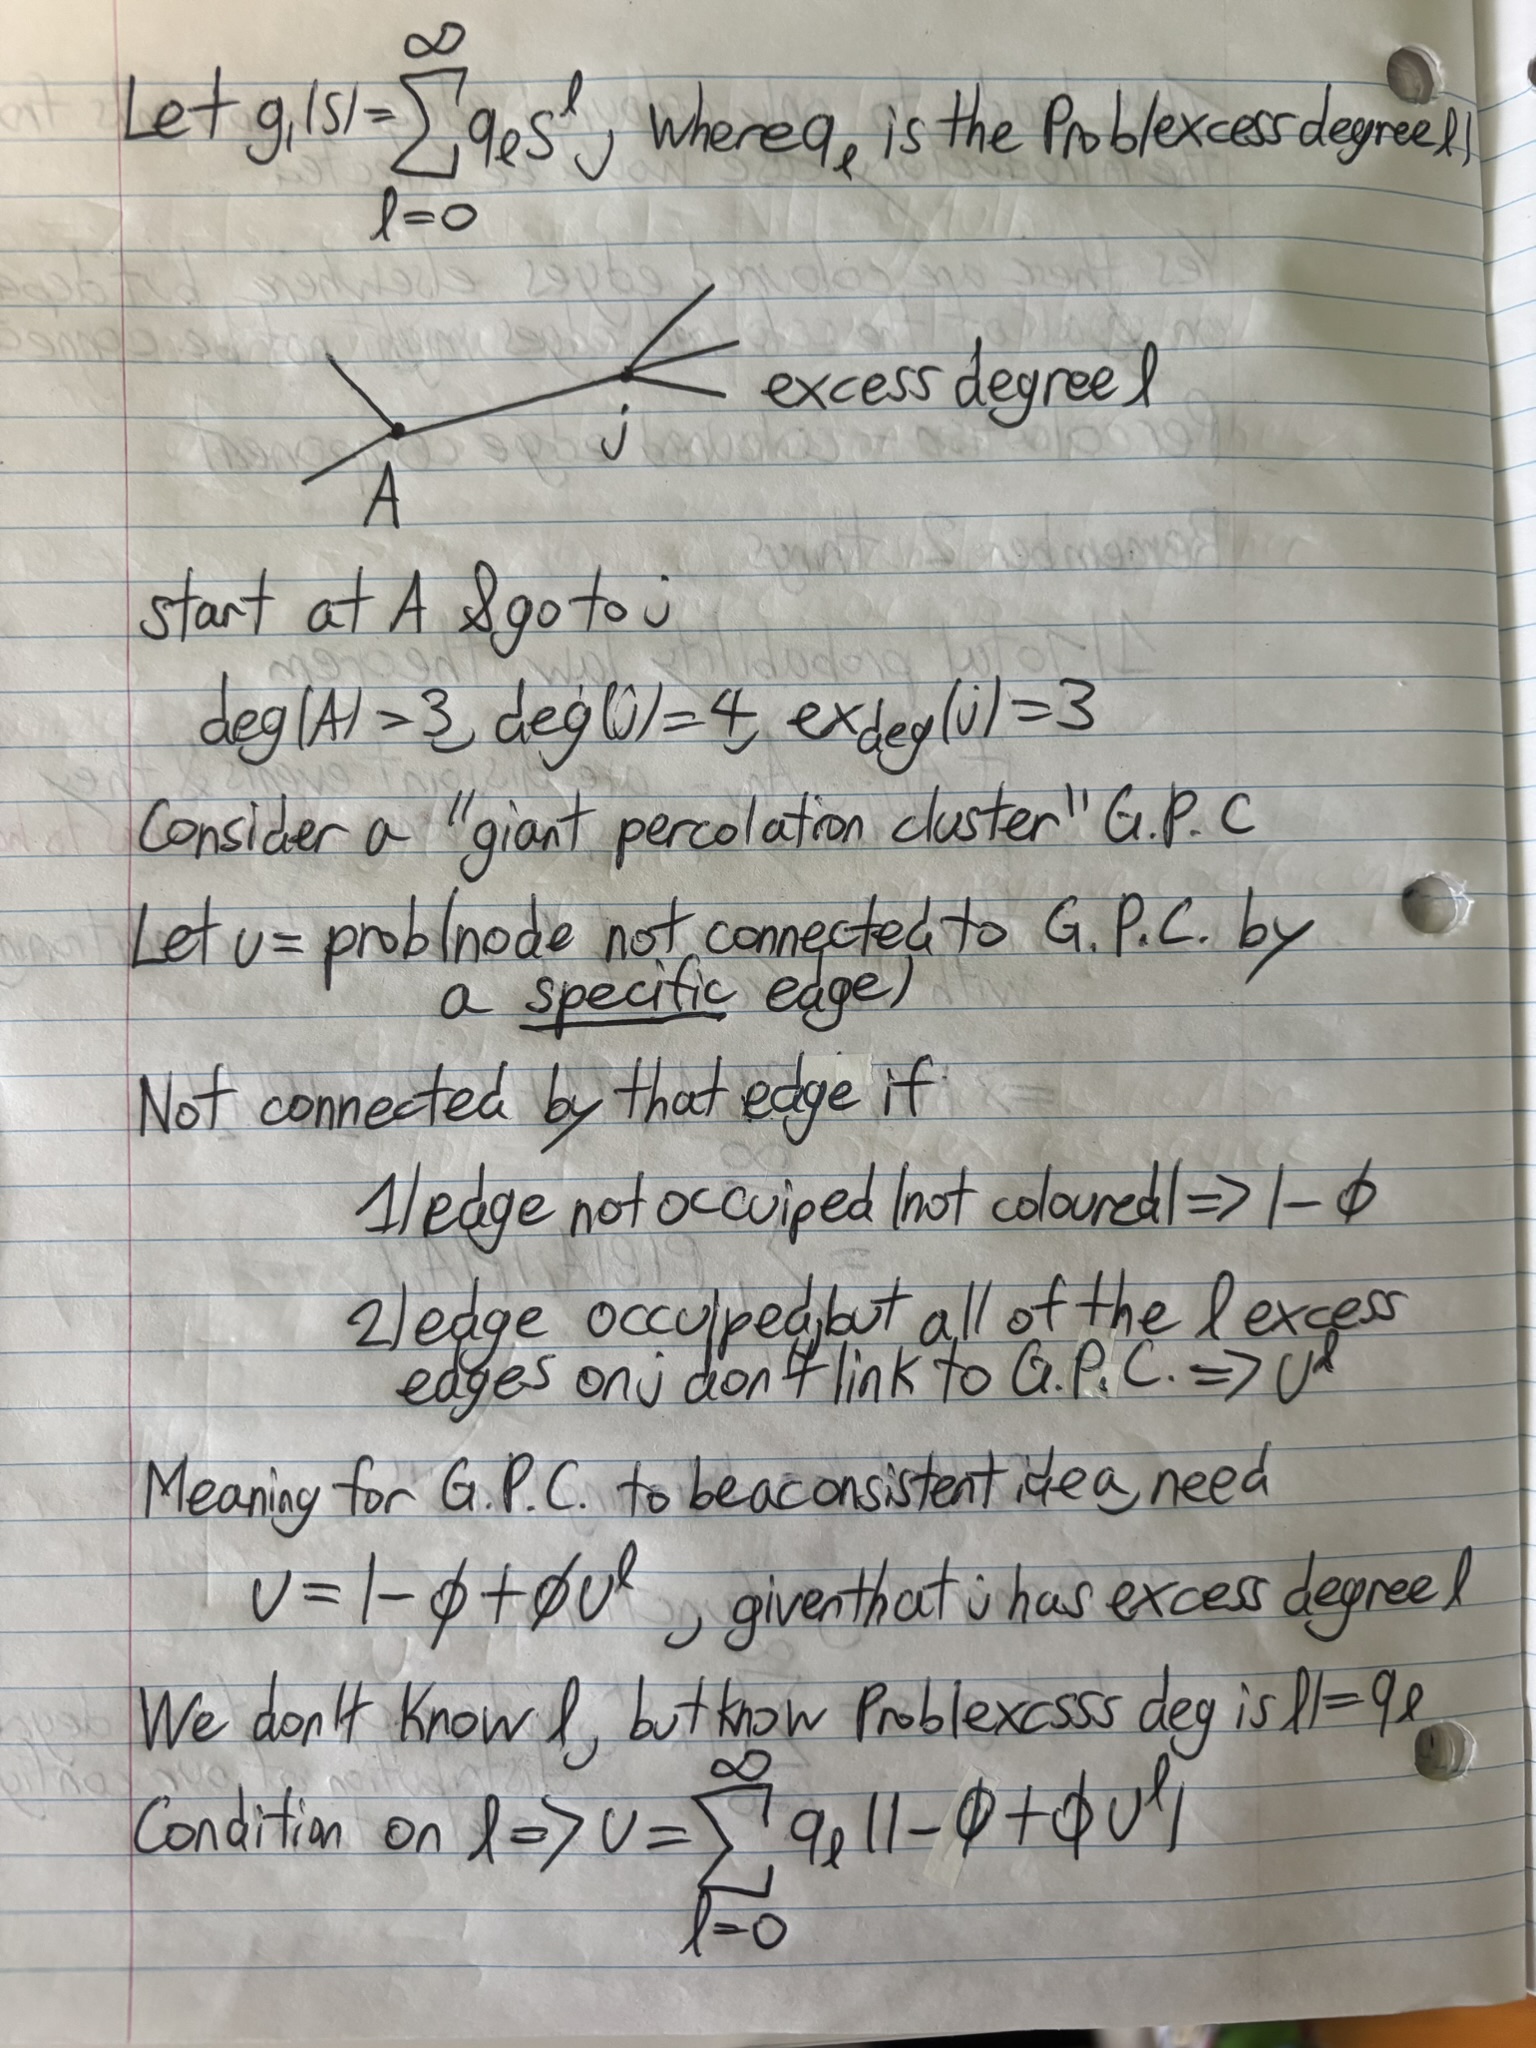 Let g₁(s) = ∑_{l=0}^{∞} qₗ sˡ, where qₗ is the Prob(excess degree l)
excess degree l
j
A
start at A & go to j
deg(A) = 3, deg(j) = 4, ex_deg(j) = 3
Consider a "giant percolation cluster" G.P.C
Let u = prob(node not connected to G.P.C. by
a specific edge)
Not connected by that edge if
1) edge not occuiped (not coloured) => 1 - ϕ
2) edge occuiped, but all of the l excess
edges on j don't link to G.P.C. => uˡ
Meaning for G.P.C. to be a consistent idea, need
u = 1 - ϕ + ϕuˡ, given that j has excess degree l
We don't know l, but know Prob(excsss deg is l) = qₗ
Condition on l => u = ∑_{l=0}^{∞} qₗ (1 - ϕ + ϕuˡ)